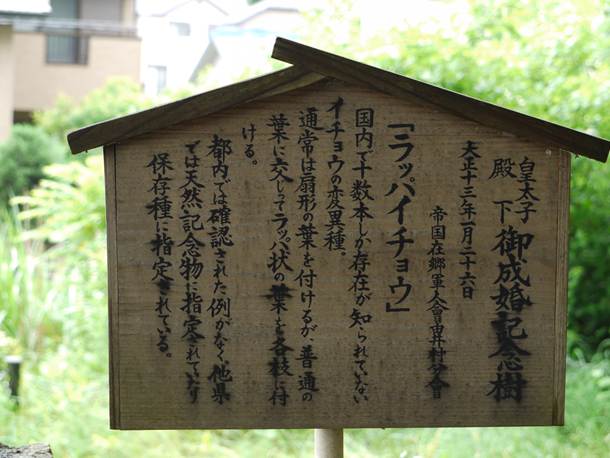 皇太子殿下御成婚記念樹
大正十三年一月二十六日
帝国在郷軍人會井村分会
「ラッパイチョウ」
国内で十数本しか存在が知られていない
イチョウの変異種。
通常は扇形の葉を付けるが、普通の
葉に交じってラッパ状の葉を各枝に付
ける。
都内では確認された例がなく、他県
では天然記念物に指定されていたり
保存種に指定されている。